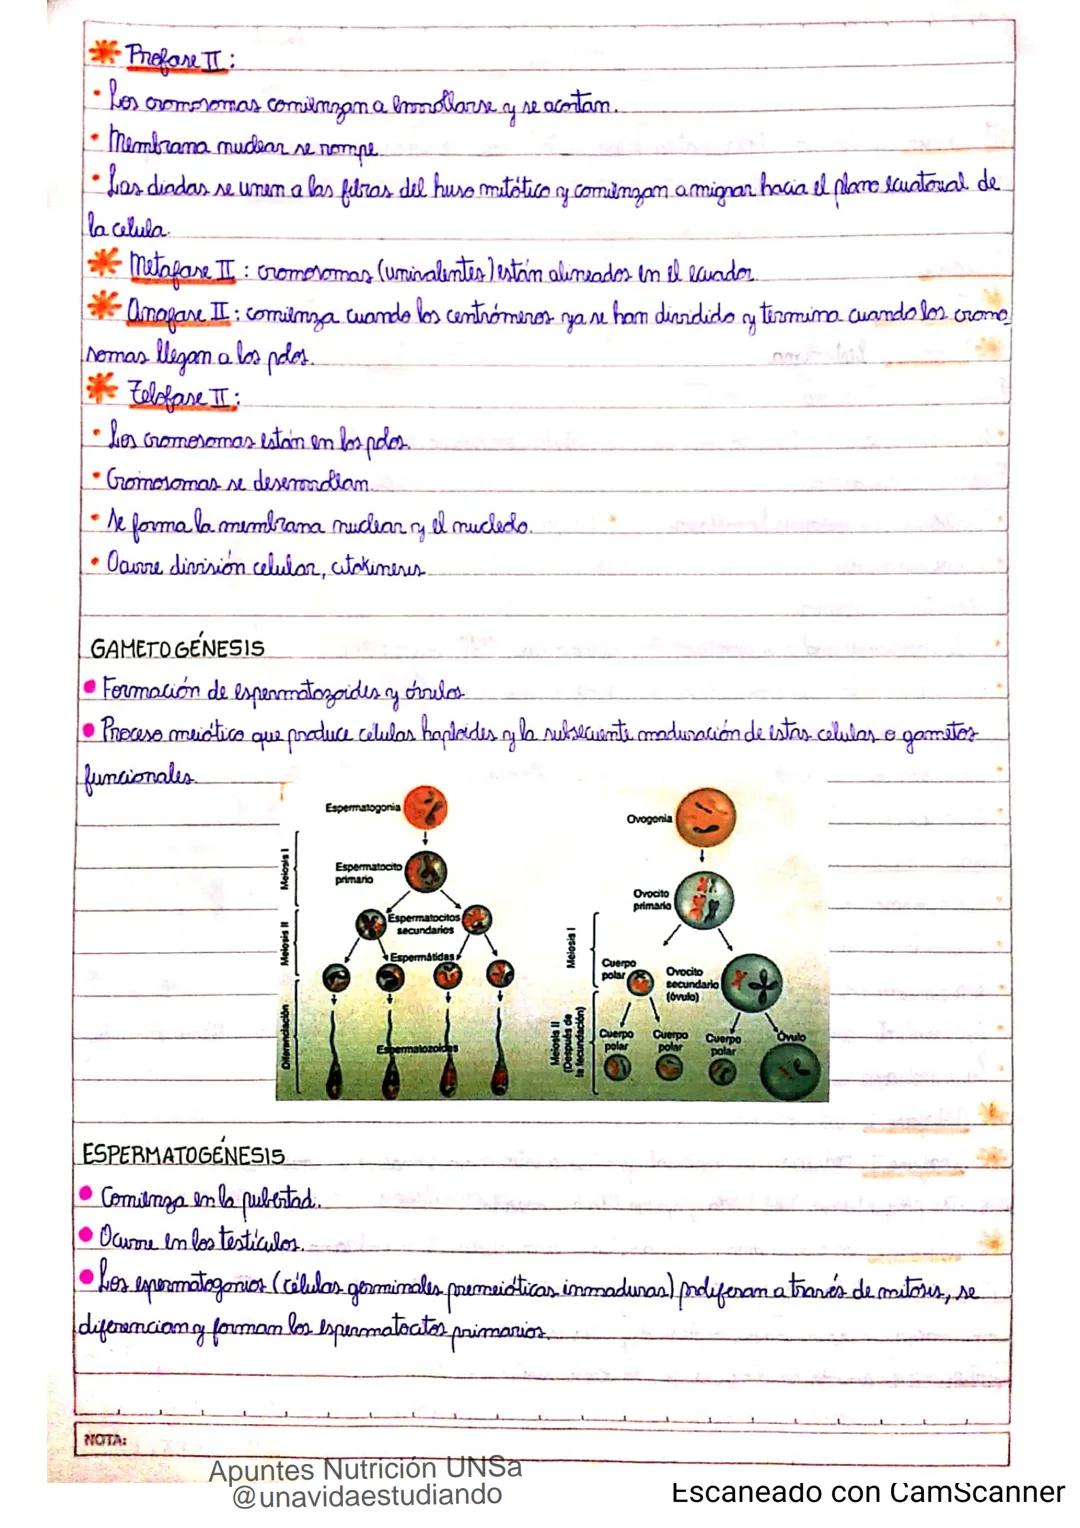 Profase II:
• Los cromosomas comienzan a enrollarse y se acortan.
• Membrana nuclear se rompe.
• Las diadas se unen a las fibras del huso mitótico y comienzan a migrar hacia el plano ecuatorial de
la celula.
Metafase II: cromosomas (univalentes) están alineados en el ecuador.
Anafase II: comienza cuando los centrómeros ya se han dividido y termina cuando los cromo
somas llegan a los polos.
Telofase II:
• Los cromosomas están en los polos.
• Cromosomas se desenrollan.
• Se forma la membrana nuclear y el nucleolo.
• Ocurre división celular, citokinesis
GAMETOGÉNESIS
• Formación de espermatozoides y óvulos
• Proceso meiótico que produce células haploides y la subsecuente maduración de estas celulas o gametos
funcionales.
Espermatogonia
Meiosis I
Espermatocito
primario
Meiosis II
Espermatocitos
secundarios
Espermátidas
Diferenciación
Espermatozoides
Ovogonia
Ovocito
primario
Meiosis I
Cuerpo
polar
Ovocito
secundario
(óvulo)
Meiosis II
(Después de
la fecundación)
Cuerpo
polar
Cuerpo
polar
Cuerpo
polar
Óvulo
ESPERMATOGÉNESIS
• Comienza en la pubertad.
• Ocurre en los testículos.
• Los espermatogonios (células germinales premeióticas inmaduras) proliferan a través de mitosis, se
diferencian y forman los espermatocitos primarios.
NOTA:
Apuntes Nutrición UNSa
@unavidaestudiando
Escaneado con CamScanner